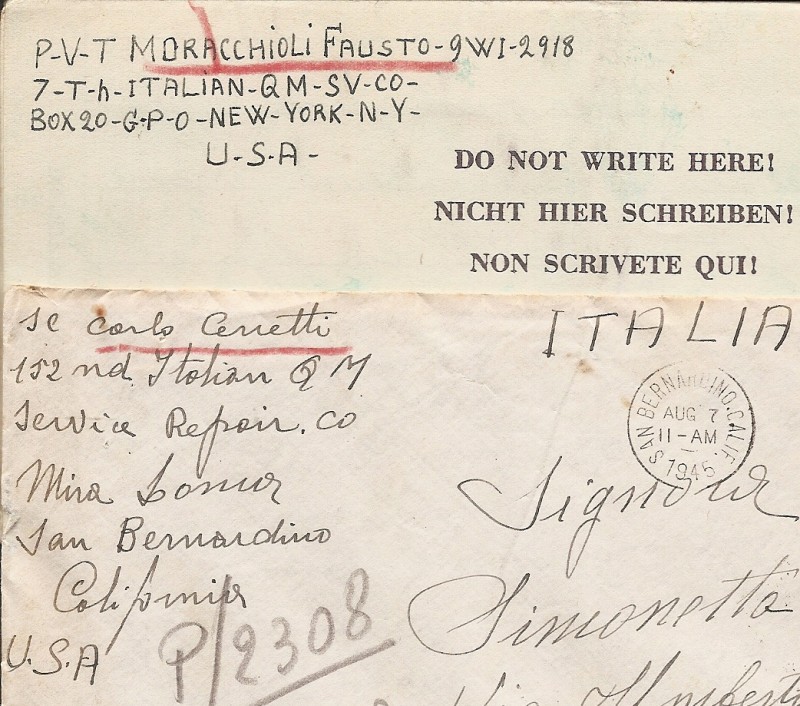 P-V-T MORACCHIOLI FAUSTO-9WI-2918
7-T-h-ITALIAN-QM-SV-CO-
BOX20-G-P-O-NEW-YORK-N-Y-
U-S-A-
DO NOT WRITE HERE!
NICHT HIER SCHREIBEN!
NON SCRIVETE QUI!
Carlo Cerretti
152nd Italian QM
Service Repair. CO
Mira Loma
San Bernardino
California
U.S.A
P/2308
ITALIA
SAN BERNARDINO, CALIF.
AUG 7
11-AM
1945
Simonetta
Via Umberto